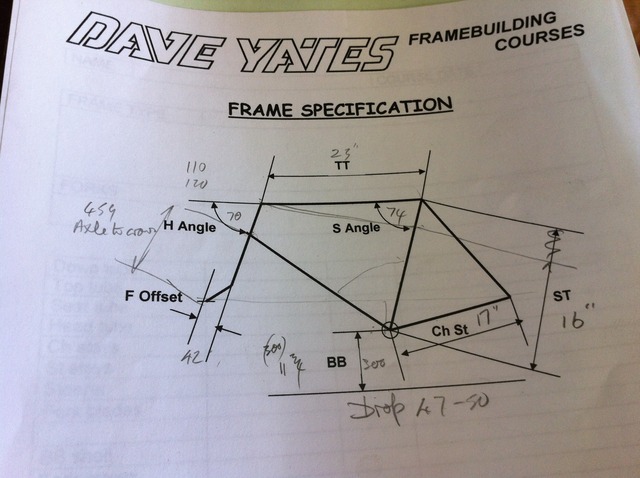 DAVE YATES FRAMEBUILDING
COURSES
FRAME SPECIFICATION
23"
TT
110
120
459
Axle to crown
H Angle
70
S Angle
74
F Offset
ST
16"
17"
Ch St
42
(300)
BB
300
Drop 47-50